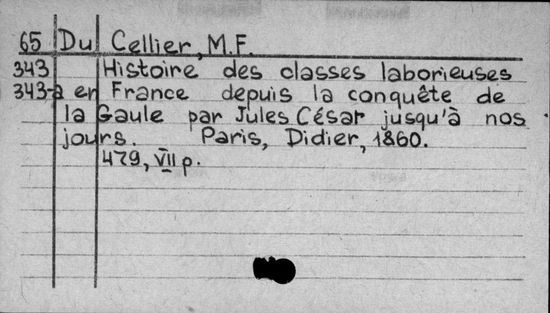 65 Du Cellier, M.F.
343 Histoire des classes laborieuses
343-a en France depuis la conquête de
la Gaule par Jules César jusqu'à nos
jours. Paris, Didier, 1860.
479, VII p.